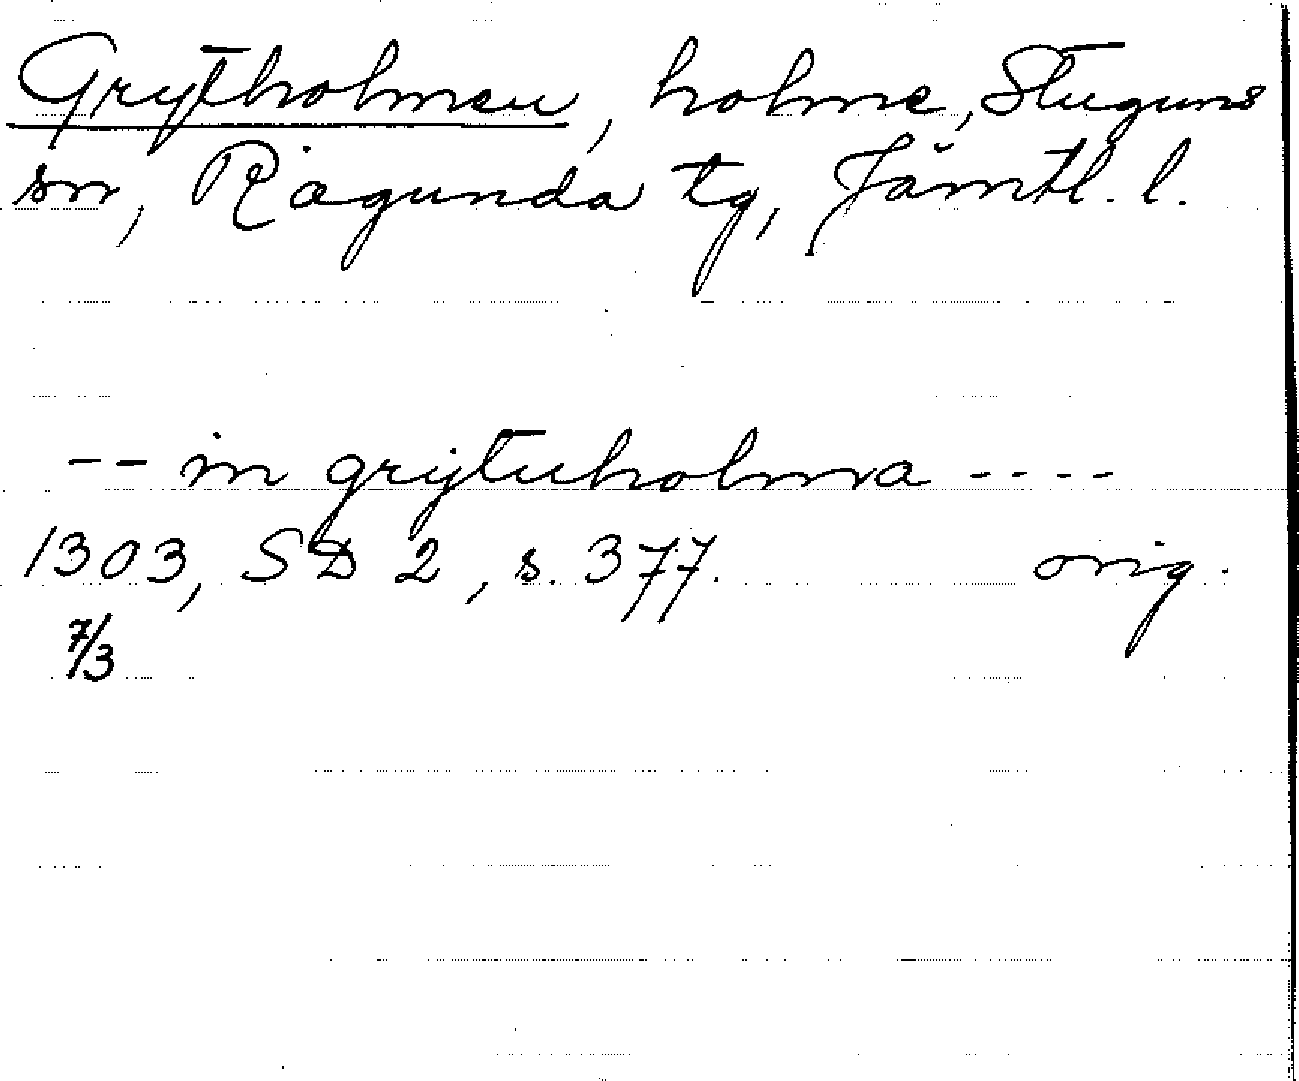 Grytholmen, holme, Stuguns
sn, Ragunda tg, Jämtl. l.
-- in grijtuholma ----
1303, SD 2, s. 377. orig.
7/3